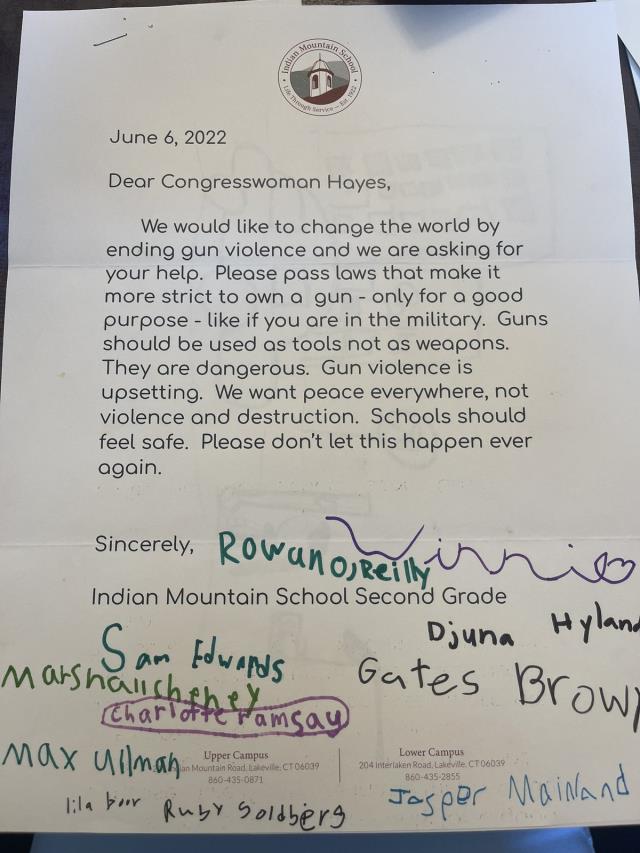 Indian Mountain School
Life Through Service — Est. 1922
June 6, 2022
Dear Congresswoman Hayes,
We would like to change the world by
ending gun violence and we are asking for
your help. Please pass laws that make it
more strict to own a gun - only for a good
purpose - like if you are in the military. Guns
should be used as tools not as weapons.
They are dangerous. Gun violence is
upsetting. We want peace everywhere, not
violence and destruction. Schools should
feel safe. Please don't let this happen ever
again.
Sincerely, Rowan O'Reilly Winnie
Indian Mountain School Second Grade
Djuna Hyland
Sam Edwards
Gates Brown
Marshall cheney
charlotte ramsay
Max Ullman
Upper Campus
Mountain Road, Lakeville, CT 06039
860-435-0871
Lower Campus
204 Interlaken Road, Lakeville, CT 06039
860-435-2855
Jasper Mainland
lila Ruby Goldberg